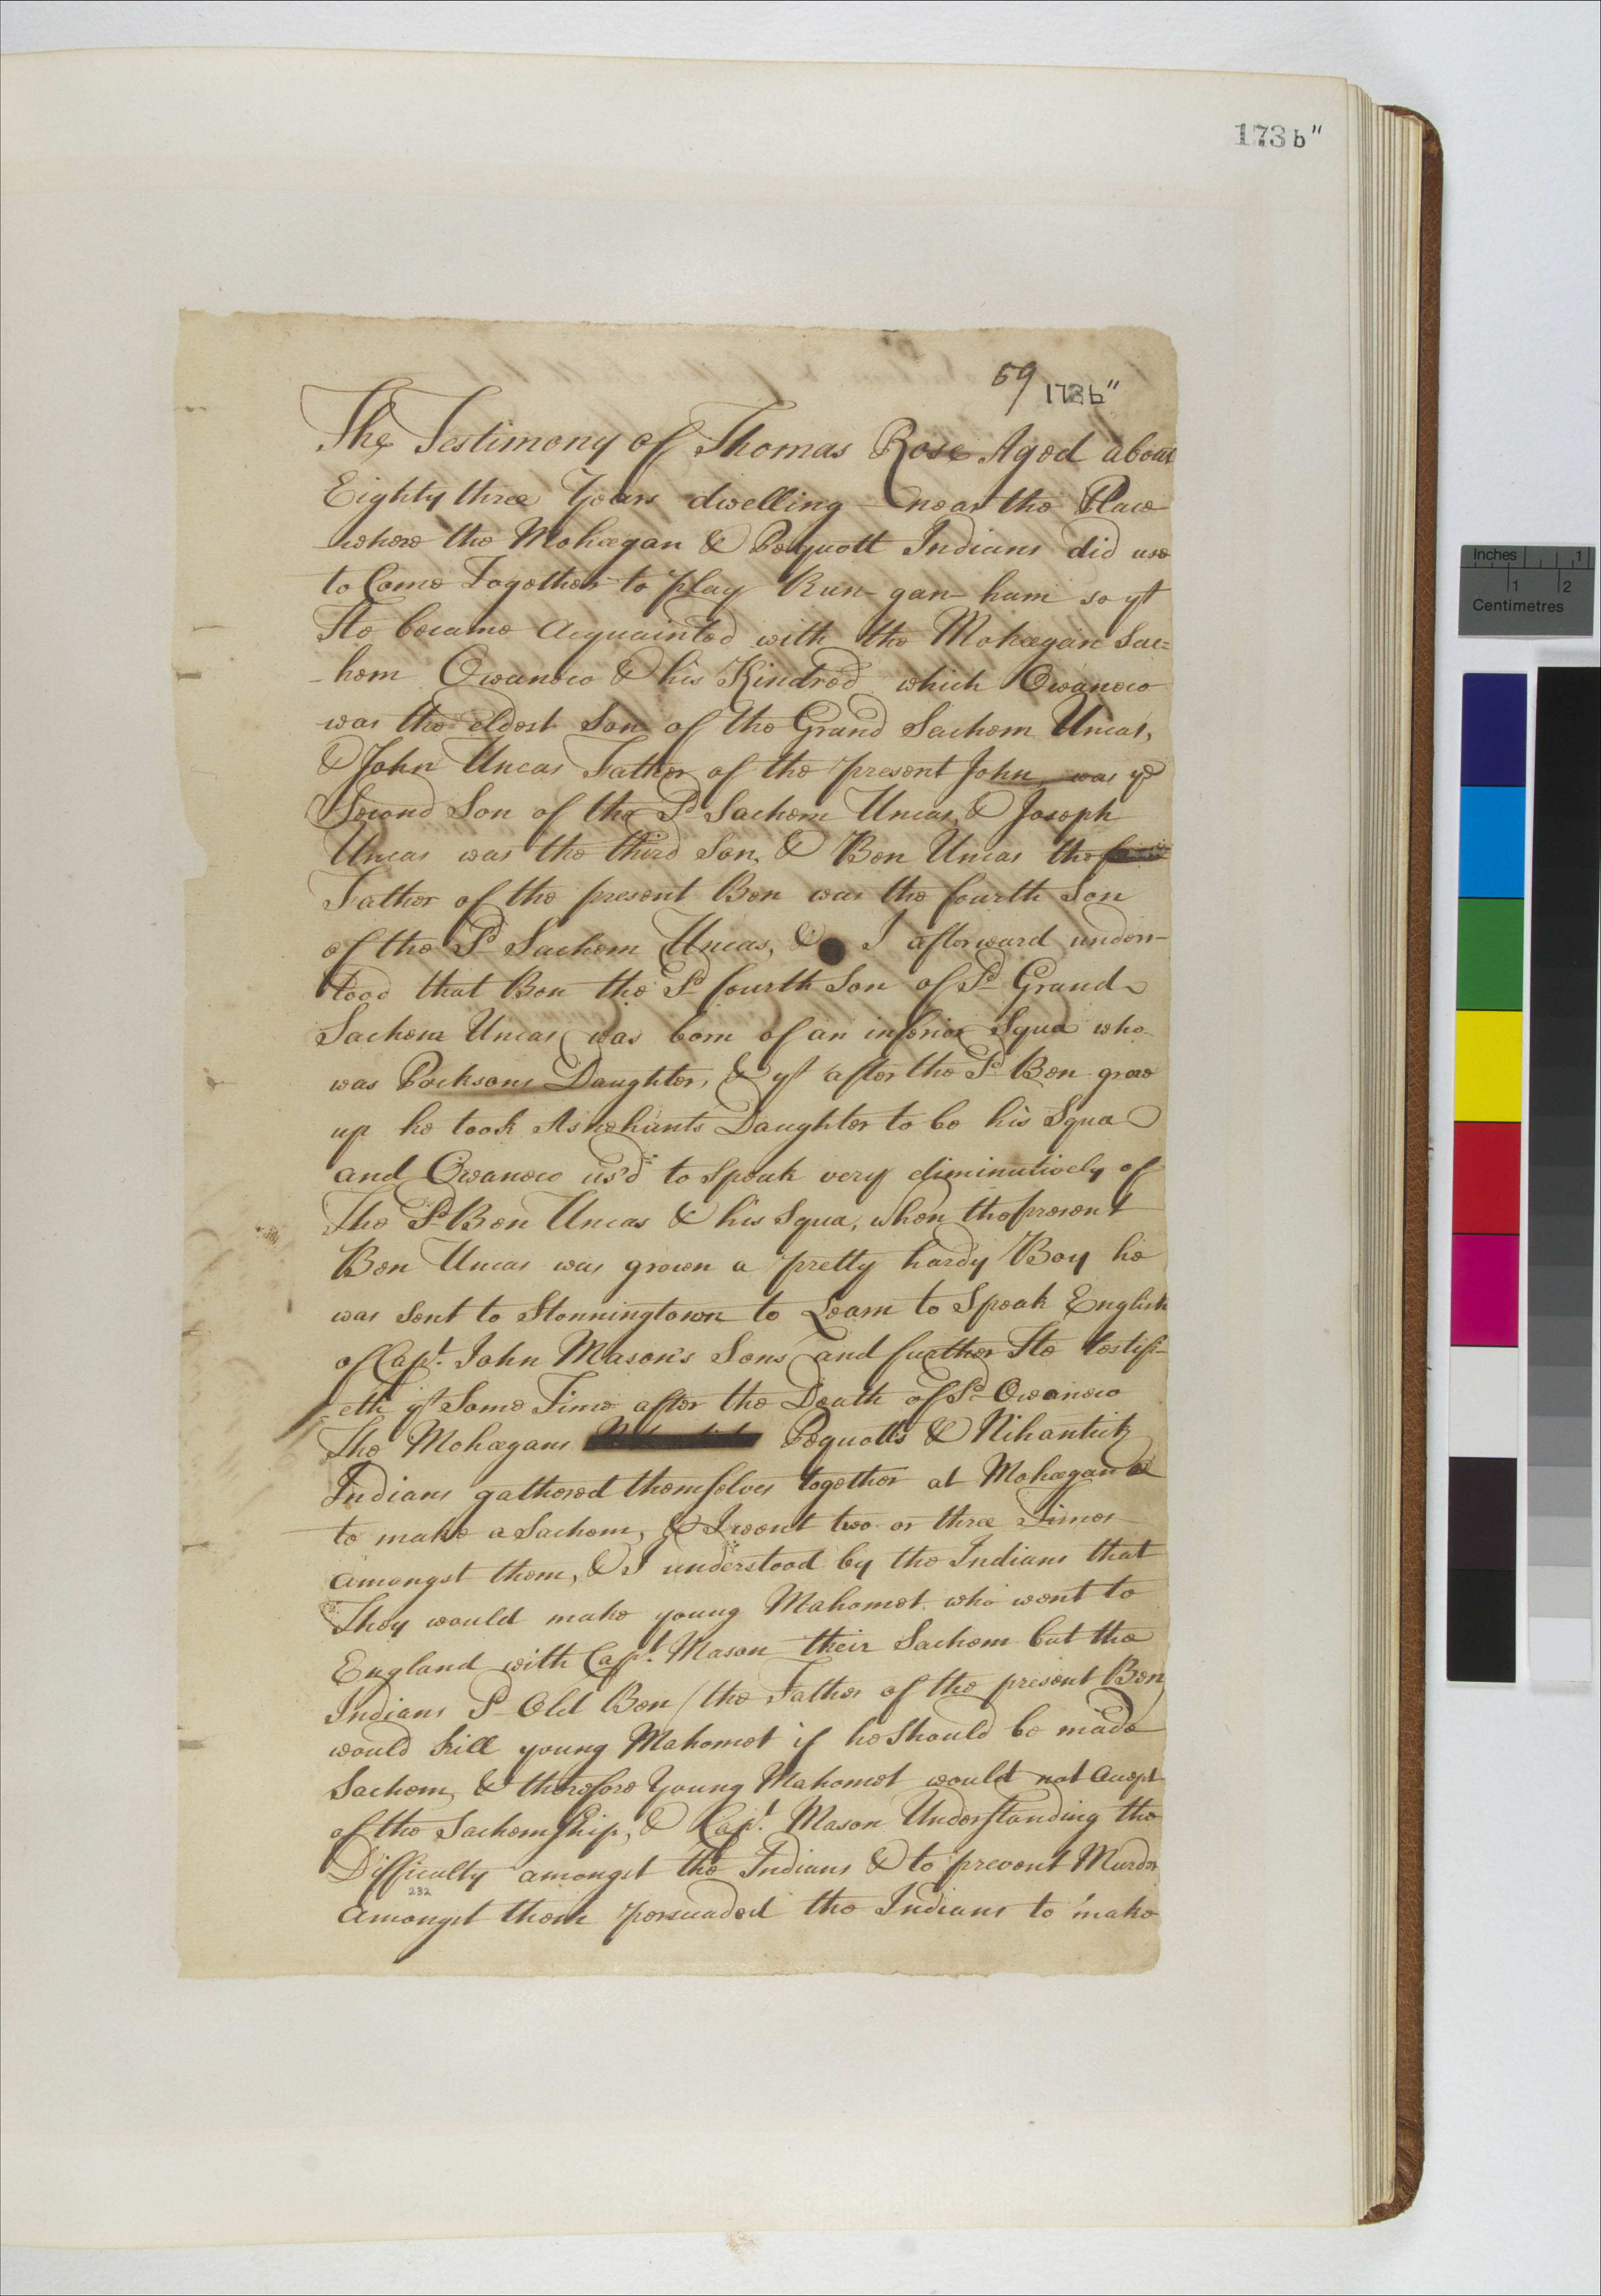 173 b"
59
173b"
The Testimony of Thomas Rose Aged about
Eighty three Years dwelling near the Place
where the Mohegan & Pequott Indians did use
to Come Together to play Run-gan-ham so yt
He became Acquainted with the Mohegan Sac=
-hem Owaneco & his Kindred which Owaneco
was the eldest Son of the Grand Sachem Uncas,
& John Uncas Father of the present John was ye
Second Son of the Sd Sachem Uncas, & Joseph
Uncas was the third Son, & Ben Uncas the
Father of the present Ben was the fourth Son
of the Sd Sachem Uncas, & I afterward unders-
tood that Ben the Sd fourth Son of Sd Grand
Sachem Uncas was born of an inferior Squa who
was Pocksons Daughter, & yt after the Sd Ben grew
up he took Askehants Daughter to be his Squa
and Owaneco us'd to Speak very diminutively of
The Sd Ben Uncas & his Squa, when the present
Ben Uncas was grown a pretty hardy Boy he
was Sent to Stonningtown to Learn to Speak English
of Capt. John Mason's Sons and further He testifi-
-eth yt Some Time after the Death of Sd Owaneco
The Mohegans Pequotts & Nihantick
Indians gathered themselves together at Mohegan
to make a Sachem, & I went two or three Times
amongst them, & I understood by the Indians that
They would make young Mahomet who went to
England with Capt. Mason their Sachem but the
Indians Sd Old Ben (the Father of the present Ben)
would kill young Mahomet if he Should be made
Sachem, & therefore Young Mahomet would not Accept
of the Sachemship, & Capt. Mason Understanding the
Difficulty amongst the Indians & to prevent Murder
232
Amongst them persuaded the Indians to make
Inches 1
1 2
Centimetres